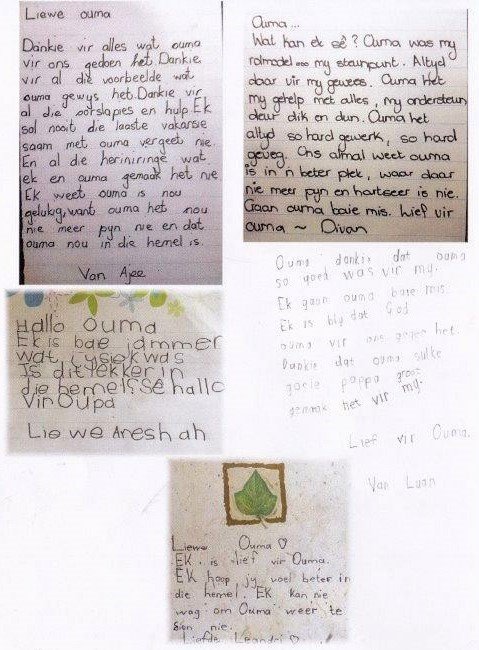 Liewe ouma
Dankie vir alles wat ouma
vir ons gedoen het. Dankie
vir al die voorbeelde wat
ouma gewys het. Dankie vir
al die oorslapies en hulp. Ek
sal nooit die laaste vakansie
saam met ouma vergeet nie.
En al die heriniringe wat
ek en ouma gemaak het nie
Ek weet ouma is nou
gelukig, want ouma het nou
nie meer pyn nie en dat
ouma nou in die hemel is.
Van Ajee
Ouma...
Wat kan ek sê? Ouma was my
rolmodel my steunpunt. Altyd
daar vir my gewees. Ouma Het
my gehelp met alles, my ondersteun
deur dik en dun. Ouma het
altyd so hard gewerk, so hard
geveg. Ons almal weet ouma
is in 'n beter plek, waar daar
nie meer pyn en hartseer is nie.
Gaan ouma baie mis. Lief vir
ouma ~ Divan
Ouma dankie dat ouma
so goed was vir my.
Ek gaan ouma baie mis.
Ek is bly dat God
ouma vir ons gegee het.
Dankie dat ouma sulke
pappa groot
gemaak het vir my.
Lief vir Ouma.
Van Luan
Hallo Ouma
Ek is bae jammer
wat jy siek was
Is dit lekker in
die hemel? Sê hallo
vir Oupa
Liewe Aneshah
Liewe Ouma ♡
EK is lief vir Ouma.
EK hoop jy voel beter in
die hemel. EK kan nie
wag om Ouma weer te
sien nie.
Liefde Leandri ♡